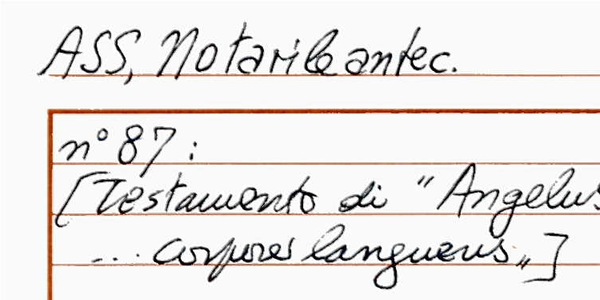 ASS, Notarile antec.
n° 87:
[Testamento di "Angelus
... corpore languens"]